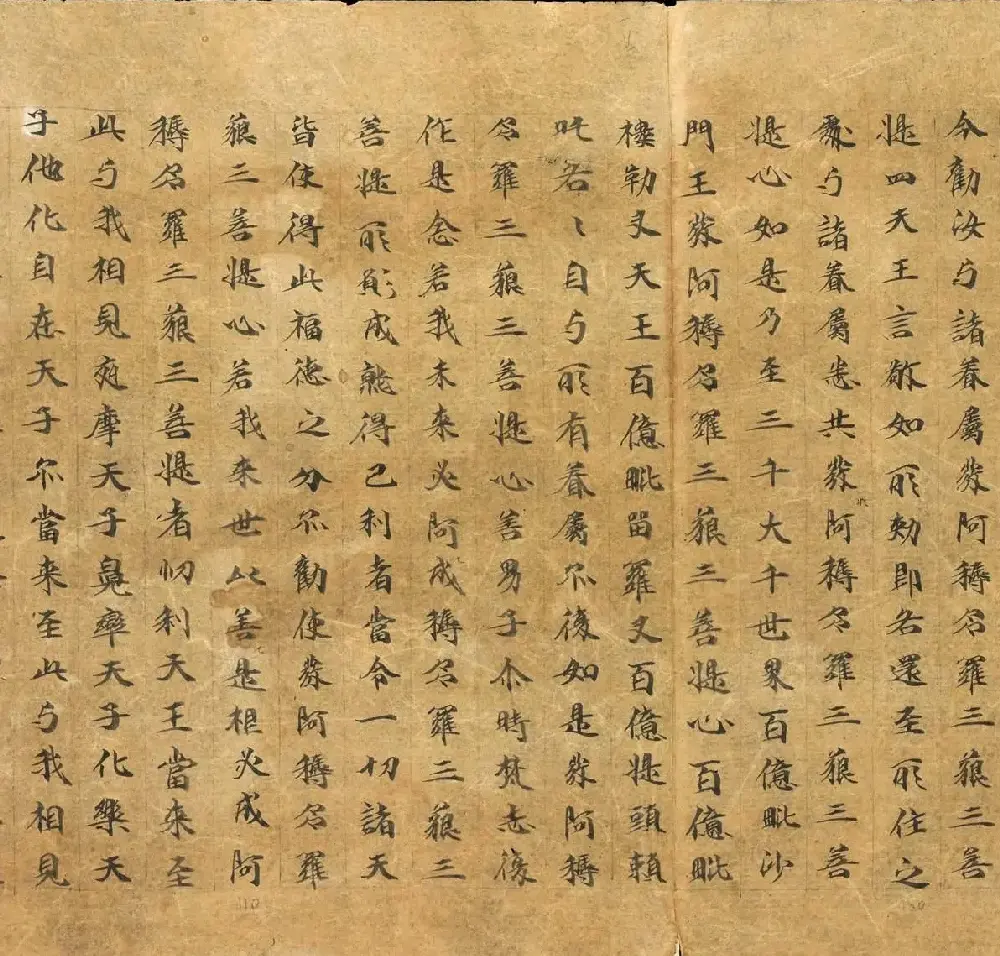 今勸汝与諸眷屬發阿耨多羅三藐三菩
提四天王言敬如所勑即各還至所住之
處与諸眷屬悉共發阿耨多羅三藐三菩
提心如是乃至三千大千世界百億毗沙
門王發阿耨多羅三藐三菩提心百億毗
樓勒叉天王百億毗留羅叉百億提頭賴
吒各〻自与所有眷屬亦復如是發阿耨
多羅三藐三菩提心善男子尒時梵志復
作是念若我未來必阿成耨多羅三藐三
菩提所願成就得己利者當令一切諸天
皆使得此福德之分亦勸使發阿耨多羅
藐三菩提心若我來世善是相必成阿
耨多羅三藐三菩提者忉利天王當來至
此与我相見夜摩天子兜率天子化樂天
子他化自在天子亦當來至此与我相見